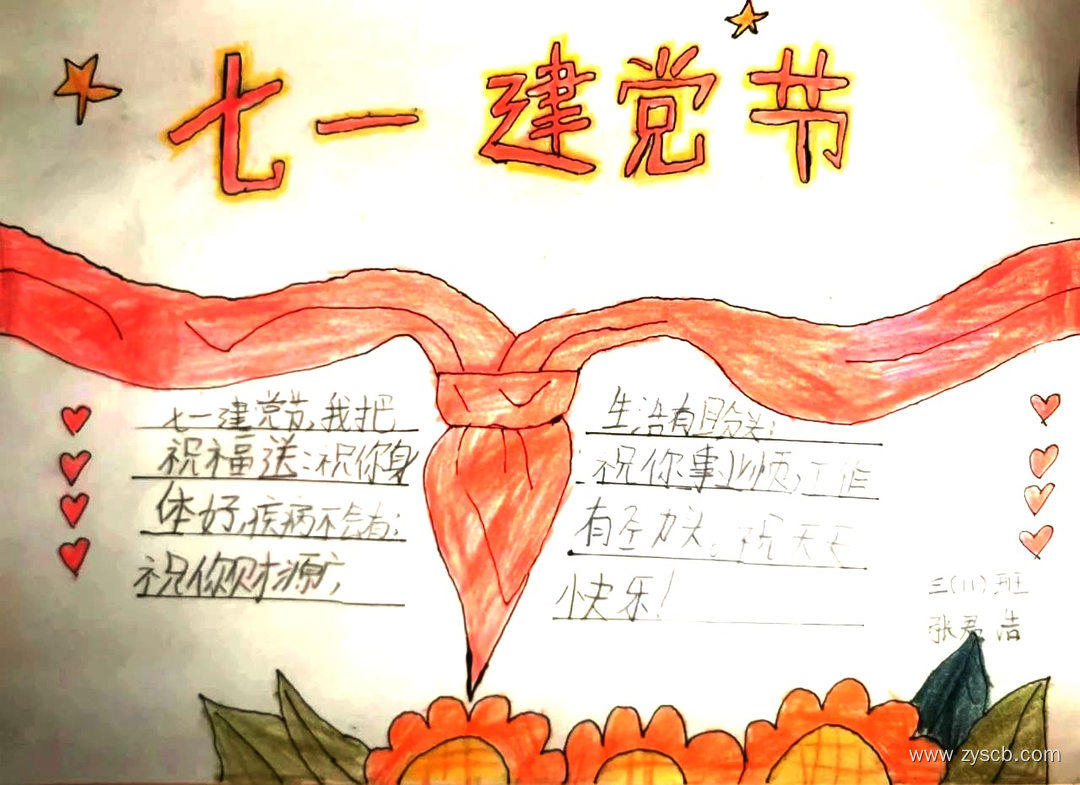 七一建党节
七一建党节,我把
祝福送:祝你身
体好,疾病不会有;
祝你财源广,
生活有盼头;
祝你事业顺,工作
有劲头。祝天天
快乐!
三(11)班
张君浩
www.zyscb.com